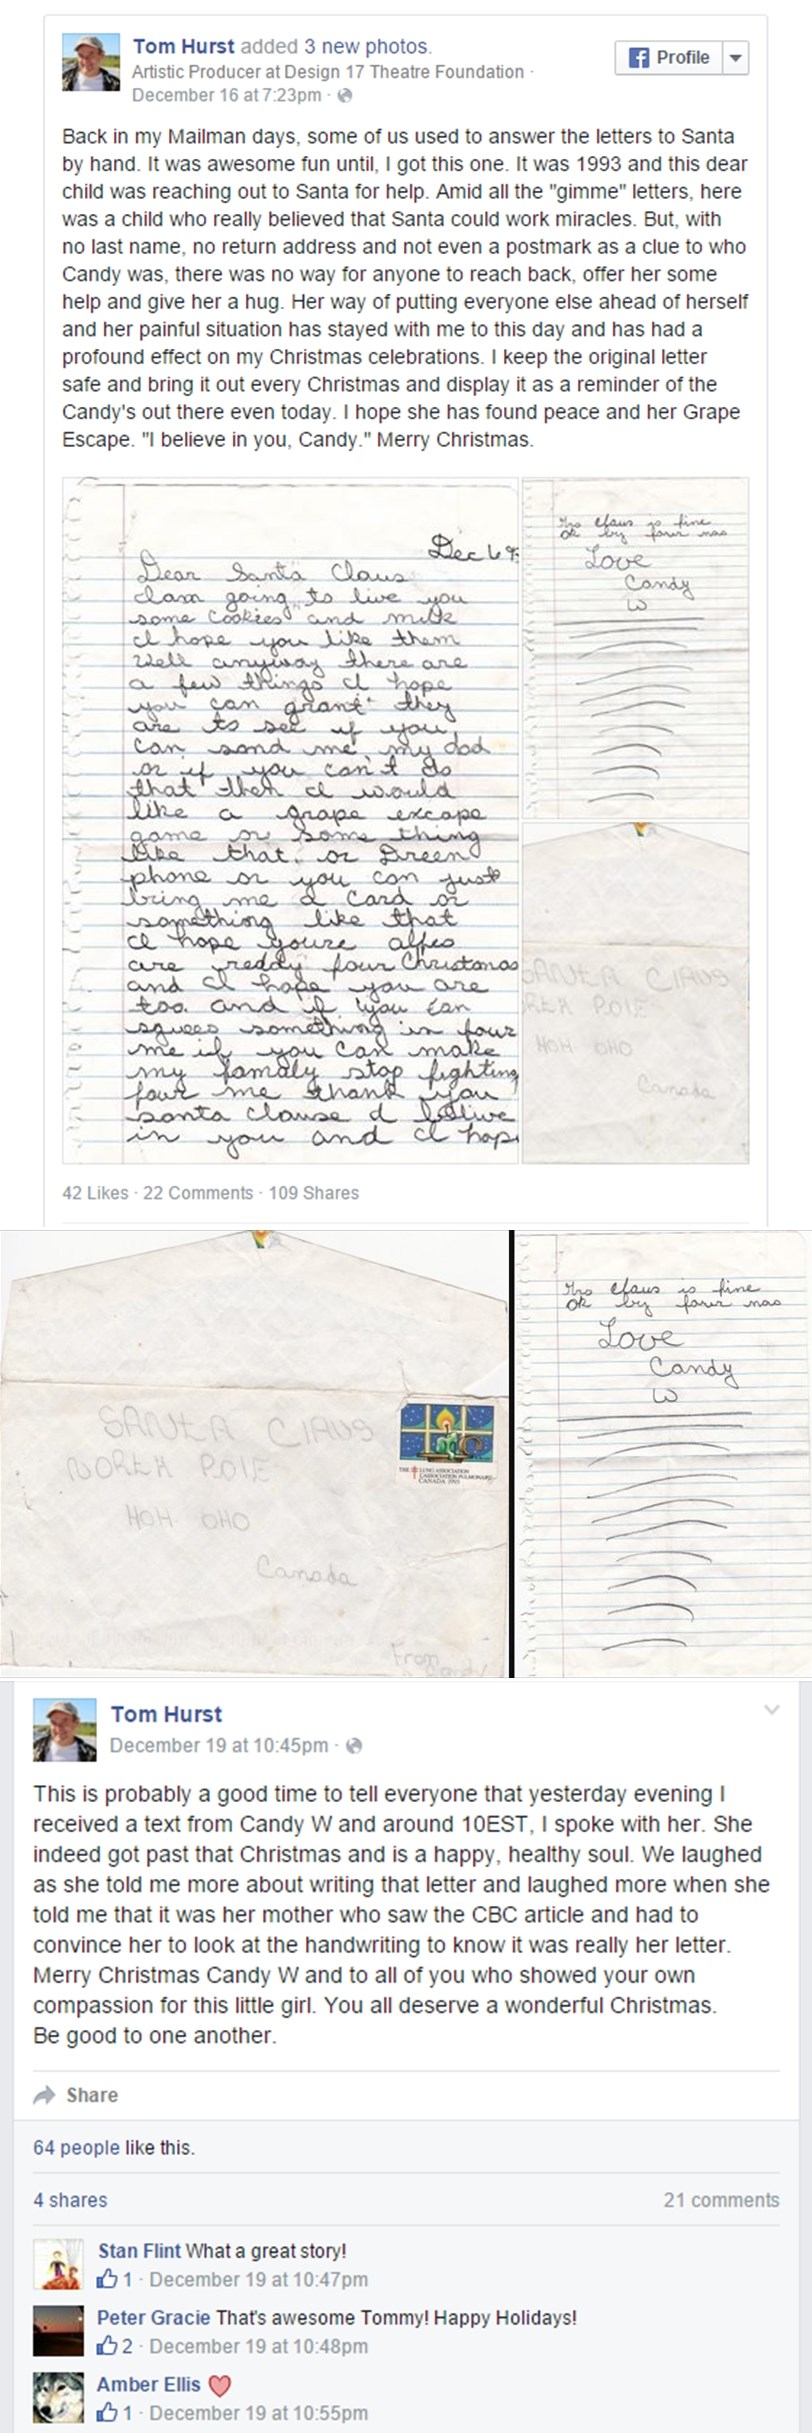 Tom Hurst added 3 new photos.
Profile
Artistic Producer at Design 17 Theatre Foundation ·
December 16 at 7:23pm ·
Back in my Mailman days, some of us used to answer the letters to Santa
by hand. It was awesome fun until, I got this one. It was 1993 and this dear
child was reaching out to Santa for help. Amid all the "gimme" letters, here
was a child who really believed that Santa could work miracles. But, with
no last name, no return address and not even a postmark as a clue to who
Candy was, there was no way for anyone to reach back, offer her some
help and give her a hug. Her way of putting everyone else ahead of herself
and her painful situation has stayed with me to this day and has had a
profound effect on my Christmas celebrations. I keep the original letter
safe and bring it out every Christmas and display it as a reminder of the
Candy's out there even today. I hope she has found peace and her Grape
Escape. "I believe in you, Candy." Merry Christmas.
Dec 6 9
Dear Santa Claus
I am going to live you
some cookies and milk
I hope you like them
well anyway there are
a few things I hope
you can grant they
are to see if you
can sand me my dad
or if you can't do
that then I would
like a grape excape
game or some thing
like that. or Dreem
phone or you can just
bring me a card or
something like that
I hope youre alfes
are reddy four Christmas
and I hope you are
too. and if you can
squees something in four
me if you can make
my famaly stop fighting
four me thank you
santa clause I belive
in you and I hop
Mrs Claus is fine
ok by four nao
Love
Candy
W
SANTA CLAUS
ORTH POLE
HOH OHO
Canada
42 Likes · 22 Comments · 109 Shares
SANTA CLAUS
NORTH POLE
HOH OHO
Canada
From
Candy
THE LUNG ASSOCIATION
L'ASSOCIATION PULMONAIRE
CANADA 1993
Mrs Claus is fine
ok by four nao
Love
Candy
W
Tom Hurst
December 19 at 10:45pm ·
This is probably a good time to tell everyone that yesterday evening I
received a text from Candy W and around 10EST, I spoke with her. She
indeed got past that Christmas and is a happy, healthy soul. We laughed
as she told me more about writing that letter and laughed more when she
told me that it was her mother who saw the CBC article and had to
convince her to look at the handwriting to know it was really her letter.
Merry Christmas Candy W and to all of you who showed your own
compassion for this little girl. You all deserve a wonderful Christmas.
Be good to one another.
Share
64 people like this.
4 shares
21 comments
Stan Flint What a great story!
1 · December 19 at 10:47pm
Peter Gracie That's awesome Tommy! Happy Holidays!
2 · December 19 at 10:48pm
Amber Ellis
1 · December 19 at 10:55pm